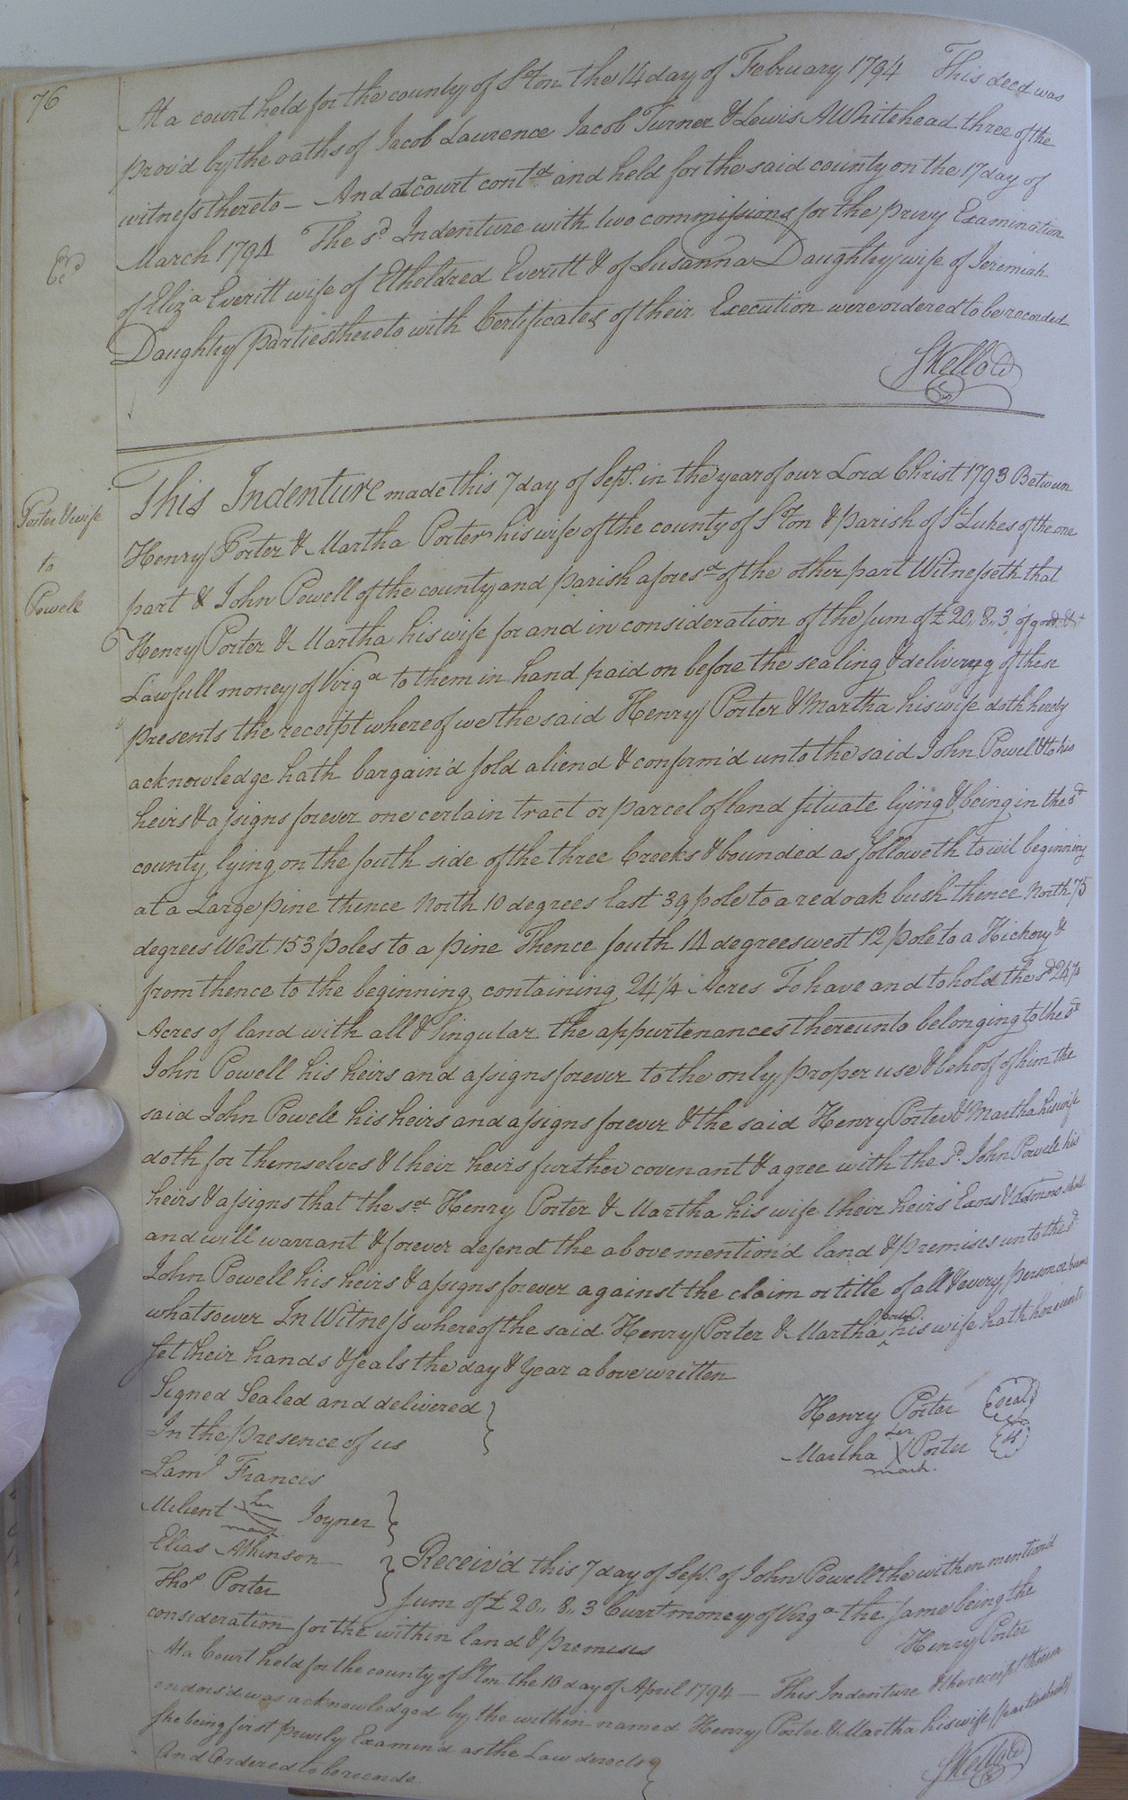 76
At a court held for the county of S°ton the 14 day of February 1794 This deed was
prov'd by the oaths of Jacob Laurence Jacob Turner & Lewis A Whitehead three of the
witness thereto – And at a court contd and held for the said county on the 17 day of
March 1794 The sd Indenture with two commissions for the privy Examination
of Eliza Everitt wife of Etheldred Everitt & of Susanna Daughtry wife of Jeremiah
Daughtry parties thereto with Certificates of their Execution were ordered to be recorded
Porter & wife
to
Powell
This Indenture made this 7 day of Sept. in the year of our Lord Christ 1793 Between
Henry Porter & Martha Porter his wife of the county of S°ton & parish of St Lukes of the one
part & John Powell of the county and parish aforesd of the other part Witnesseth that
Henry Porter & Martha his wife for and in consideration of the sum of £20,,8,,3 of good &
Lawfull money of Virga to them in hand paid on before the sealing & delivery of these
presents the receipt whereof we the said Henry Porter & Martha his wife doth hereby
acknowledge hath bargain'd sold aliend & confirm'd unto the said John Powel & to his
heirs & assigns forever one certain tract or parcel of land situate lying & being in the sd
county lying on the south side of the three Creeks & bounded as followeth to wit beginning
at a Large pine thence North 10 degrees East 39 pole to a red oak bush thence North 75
degrees West 153 poles to a pine Thence south 14 degrees west 12 pole to a Hickory &
from thence to the beginning containing 24¼ Acres To have and to hold the sd 24¼
Acres of land with all & singular the appurtenances thereunto belonging to the sd
John Powell his heirs and assigns forever to the only proper use & behoof of him the
said John Powell his heirs and assigns forever & the said Henry Porter & Martha his wife
doth for themselves & their heirs further covenant & agree with the sd John Powell his
heirs & assigns that the sd Henry Porter & Martha his wife their heirs Exors & Admrs shall
and will warrant & forever defend the above mention'd land & premises unto the sd
John Powell his heirs & assigns forever against the claim or title of all & every person or persons
whatsoever In Witness whereof the said Henry Porter & Martha Porter his wife hath hereunto
set their hands & seals the day & year above written
Signed Sealed and delivered
In the presence of us
Henry Porter (Seal)
Martha her X mark Porter
Saml Francis
Milient her mark Joyner
Elias Atkinson
Thos Porter
Receiv'd this 7 day of Sept. of John Powell the within mention'd
sum of £20,,8,,3 Currt money of Virga the same being the
consideration for the within land & premises
Henry Porter
At a Court held for the county of S°ton the 10 day of April 1794 – This Indenture & the receipt thereon
endors'd was acknowledged by the within named Henry Porter & Martha his wife parties
she being first privily Examin'd as the Law directs
And Ordered to be recorde